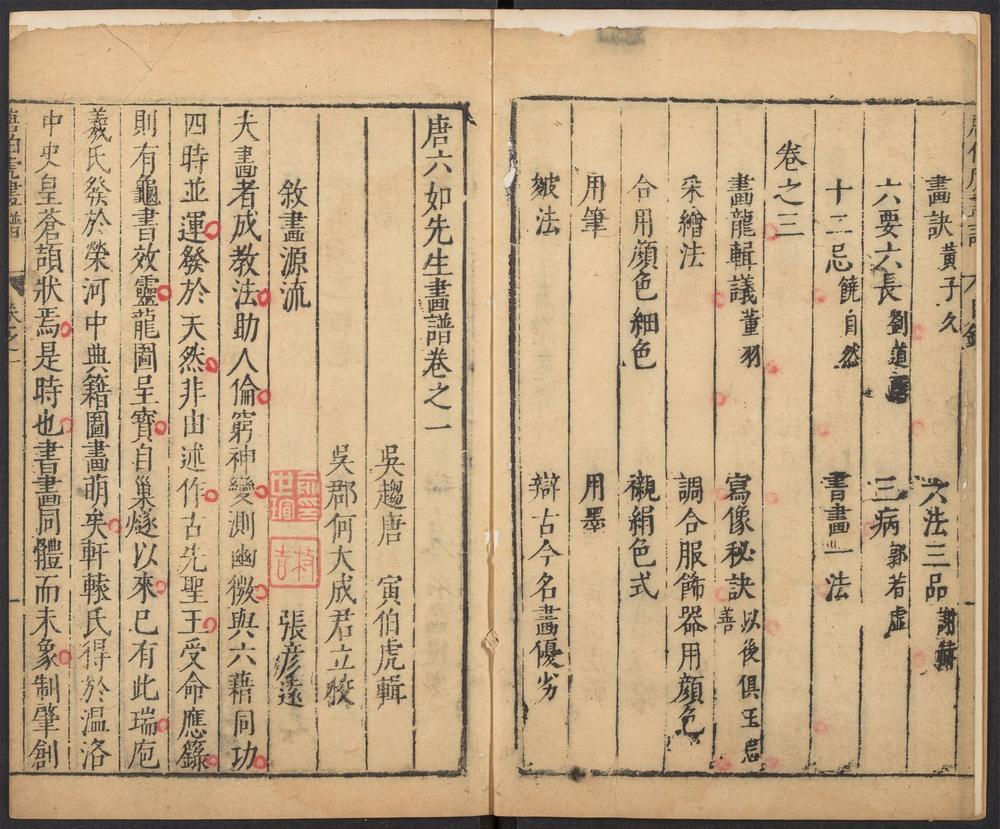 畫訣 黃子久 六法三品 謝赫
六要六長 劉道醇 三病 郭若虛
十二忌 饒自然 書畫一法
卷之三
畫龍輯議 董羽 寫像秘訣 以後俱王思善
采繪法 調合服飾器用顏色
合用顏色細色 襯絹色式
用筆 用墨
皴法 辯古今名畫優劣
唐六如先生畫譜卷之一
吳趨唐 寅伯虎輯
吳郡何大成君立校
敘畫源流 張彥遠
夫畫者成教法助人倫窮神變測幽微與六籍同功
四時並運發於天然非由述作古先聖王受命應籙
則有龜書效靈龍圖呈寶自巢燧以來已有此瑞庖
羲氏發於榮河中典籍圖畫萌矣軒轅氏得於溫洛
中史皇蒼頡狀焉是時也書畫同體而未象制肇創
唐伯虎畫譜 卷之一 一